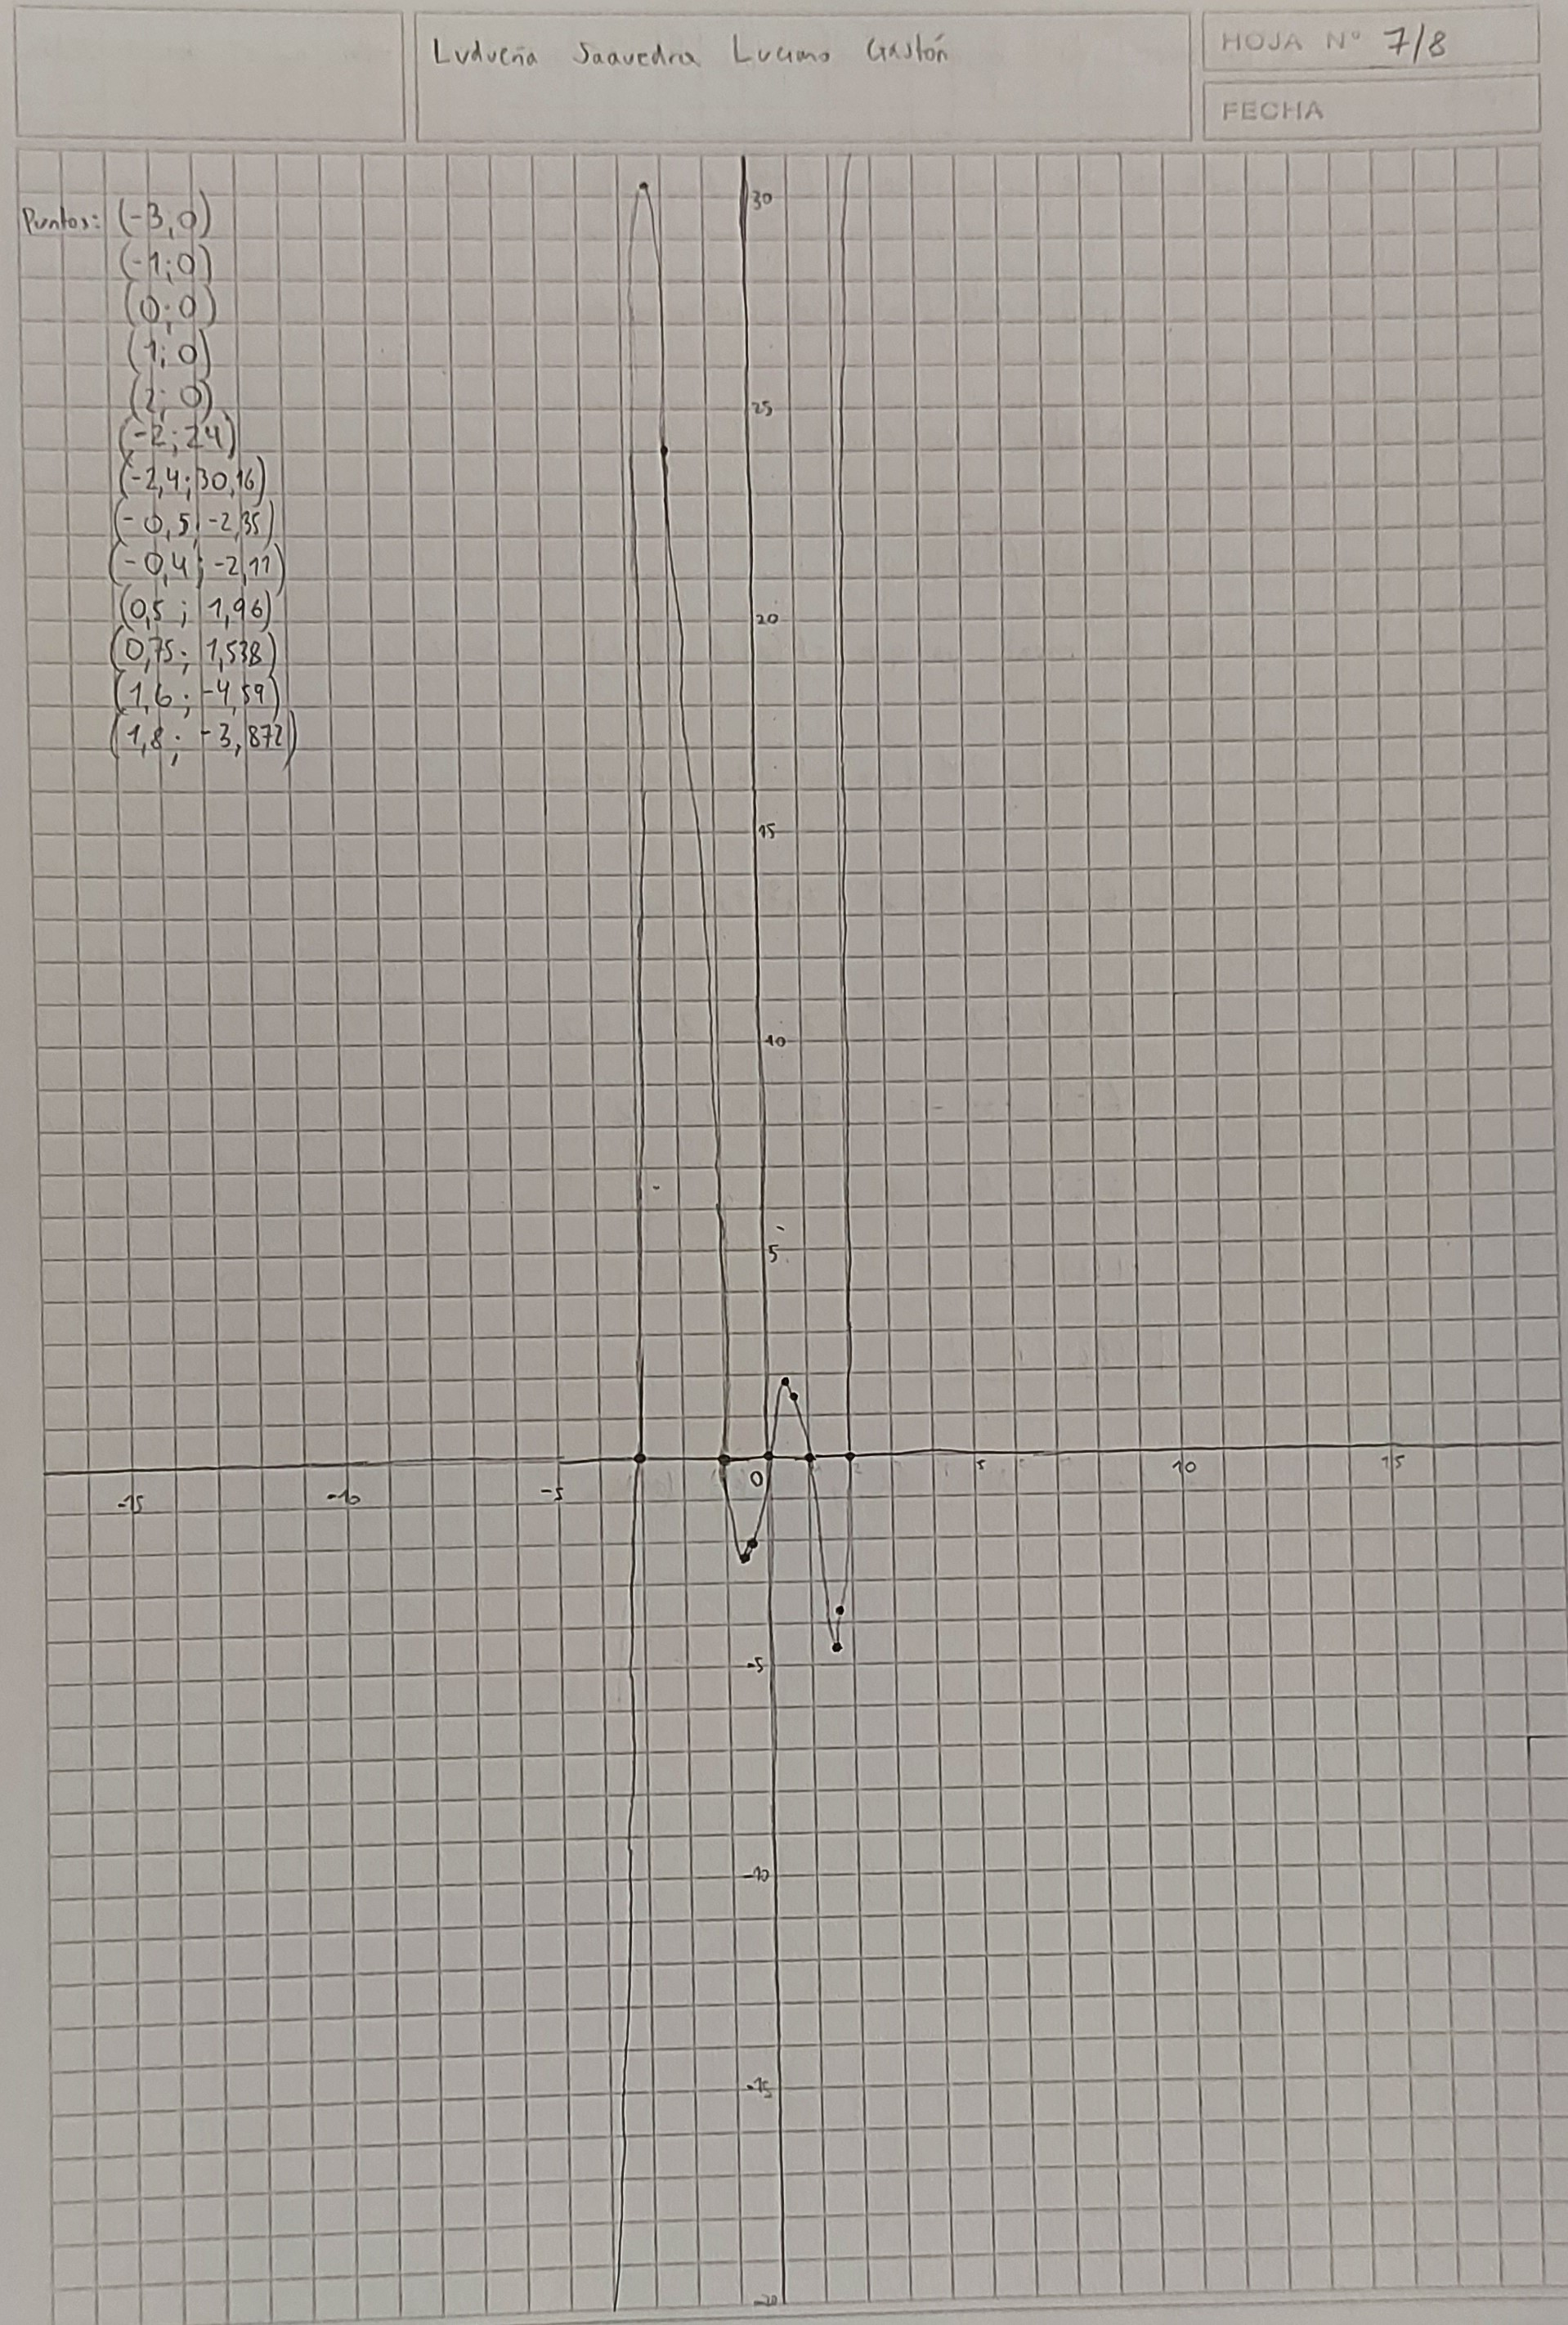 Ludueña Saavedra Luciano Gastón
HOJA N° 7/8
FECHA
Puntos: (-3,0)
(-1;0)
(0;0)
(1;0)
(2;0)
(-2;24)
(-2,4;30,16)
(-0,5;-2,35)
(-0,4;-2,11)
(0,5; 1,96)
(0,75; 1,538)
(1,6; -4,59)
(1,8; -3,872)
30
25
20
15
10
5
-15 -10 -5 0 5 10 15
-5
-10
-15
-20